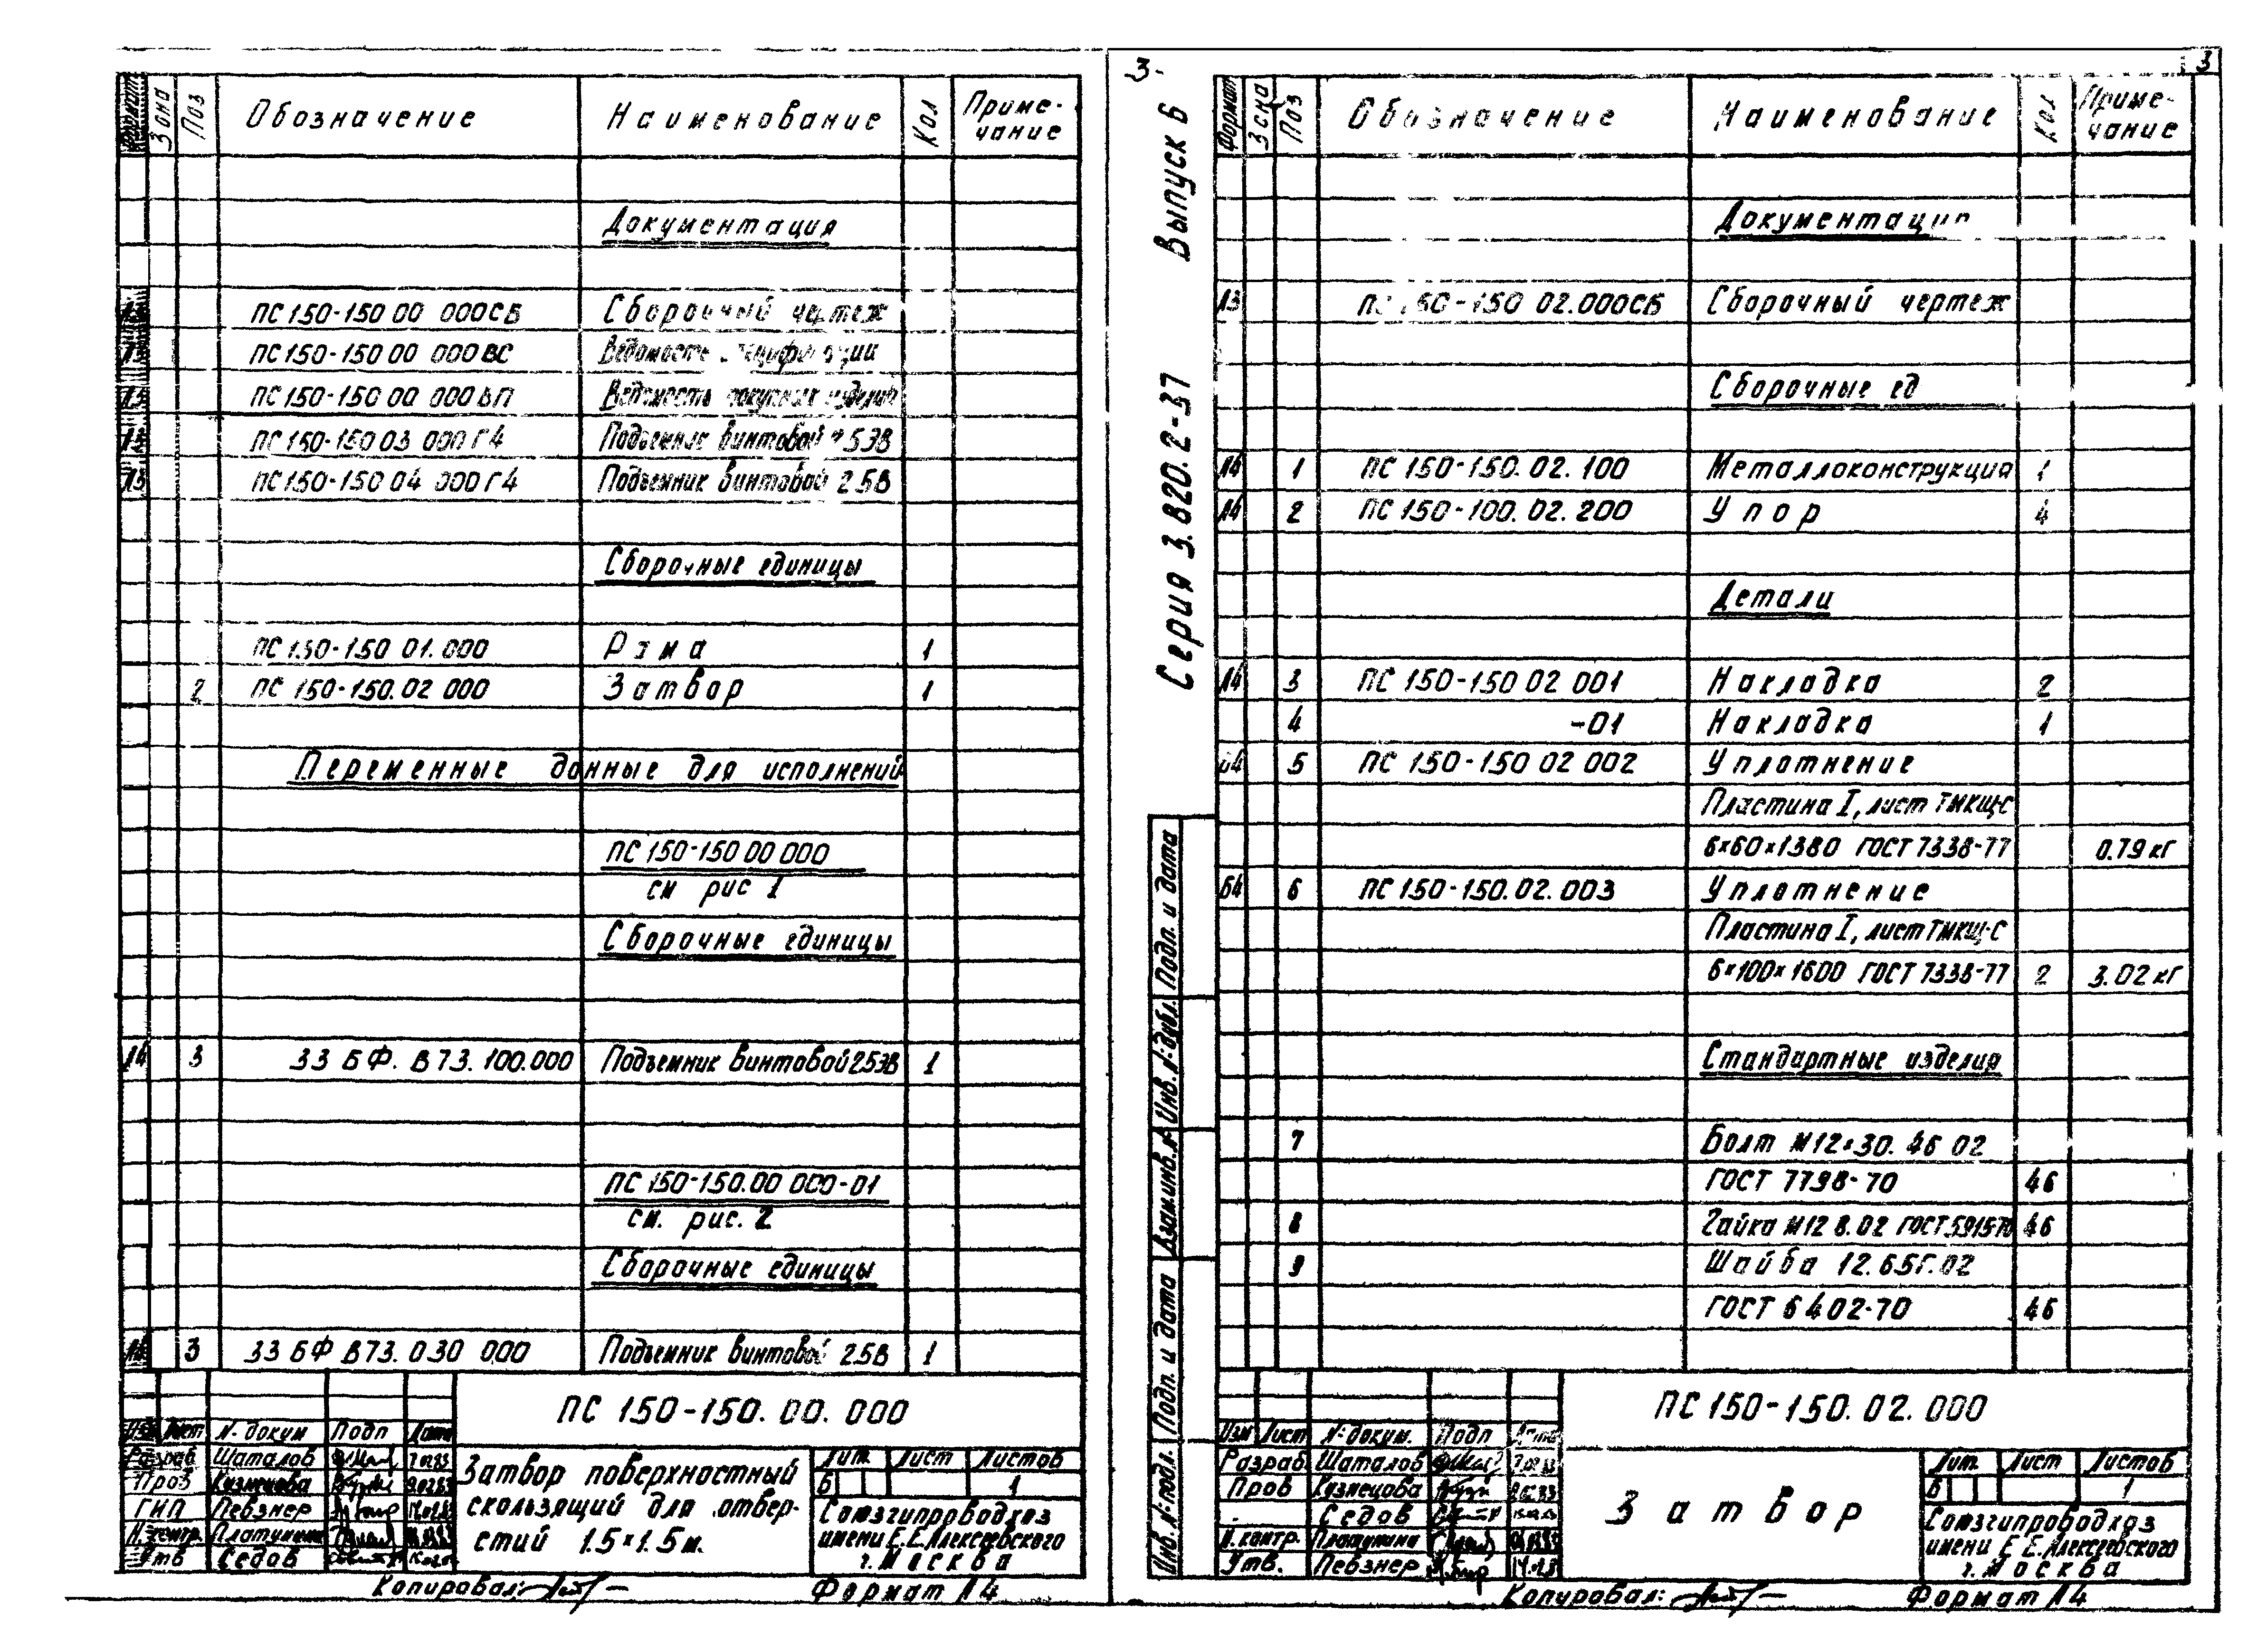 Формат Зона Поз Обозначение Наименование Кол Приме-чание
Документация
А3 ПС 150-150 00 000СБ Сборочный чертеж
А3 ПС 150-150 00 000ВС Ведомость спецификации
А3 ПС 150-150 00 000ВП Ведомость покупных изделий
А3 ПС 150-150 03 000 Г4 Подъемник винтовой 2 5ЭВ
А3 ПС 150-150 04 000 Г4 Подъемник винтовой 2 5В
Сборочные единицы
ПС 150-150 01. 000 Рама 1
2 ПС 150-150. 02 000 Затвор 1
Переменные данные для исполнений
ПС 150-150 00 000
см рис 1
Сборочные единицы
А4 3 33 БФ. В73. 100.000 Подъемник винтовой 2 5ЭВ 1
ПС 150-150.00 000-01
см. рис. 2
Сборочные единицы
А4 3 33 БФ В73. 030 000 Подъемник винтовой 2 5В 1
ПС 150-150. 00. 000
Изм Лист № докум Подп Дата
Разраб Шаталов
Пров Кузнецова
ГИП Певзнер
Н.контр. Платунина
Утв Седов
Затвор поверхностный
скользящий для отвер-
стий 1.5×1.5 м.
Лит. Лист Листов
Б 1
Союзгипроводхоз
имени Е.Е.Алексеевского
г. Москва
Копировал:
Формат А4
3
-3-
Серия 3.820.2-37 Выпуск 6
Формат Зона Поз Обозначение Наименование Кол Приме-чание
Документация
А3 ПС 150-150 02.000СБ Сборочный чертеж
Сборочные ед
А4 1 ПС 150-150. 02. 100 Металлоконструкция 1
А4 2 ПС 150-100. 02. 200 Упор 4
Детали
А4 3 ПС 150-150 02 001 Накладка 2
4 -01 Накладка 1
б4 5 ПС 150-150 02 002 Уплотнение
Пластина I, лист ТМКЩ-С
6×60×1380 ГОСТ 7338-77 0.79 кг
Б4 6 ПС 150-150. 02. 003 Уплотнение
Пластина I, лист ТМКЩ-С
6×100×1600 ГОСТ 7338-77 2 3.02 кг
Стандартные изделия
7 Болт М12×30. 46 02
ГОСТ 7798-70 46
8 Гайка М12 8.02 ГОСТ 5915 70 46
9 Шайба 12.65Г.02
ГОСТ 6402-70 46
Подп. и дата
Инв. № дубл.
Взам.инв.№
Подп. и дата
Инв. № подл.
ПС 150-150. 02. 000
Изм Лист № докум. Подп Дата
Разраб Шаталов
Пров Кузнецова
Седов
Н.контр. Платунина
Утв. Певзнер
Затвор
Лит. Лист Листов
Б 1
Союзгипроводхоз
имени Е Е.Алексеевского
г. Москва
Копировал:
Формат А4